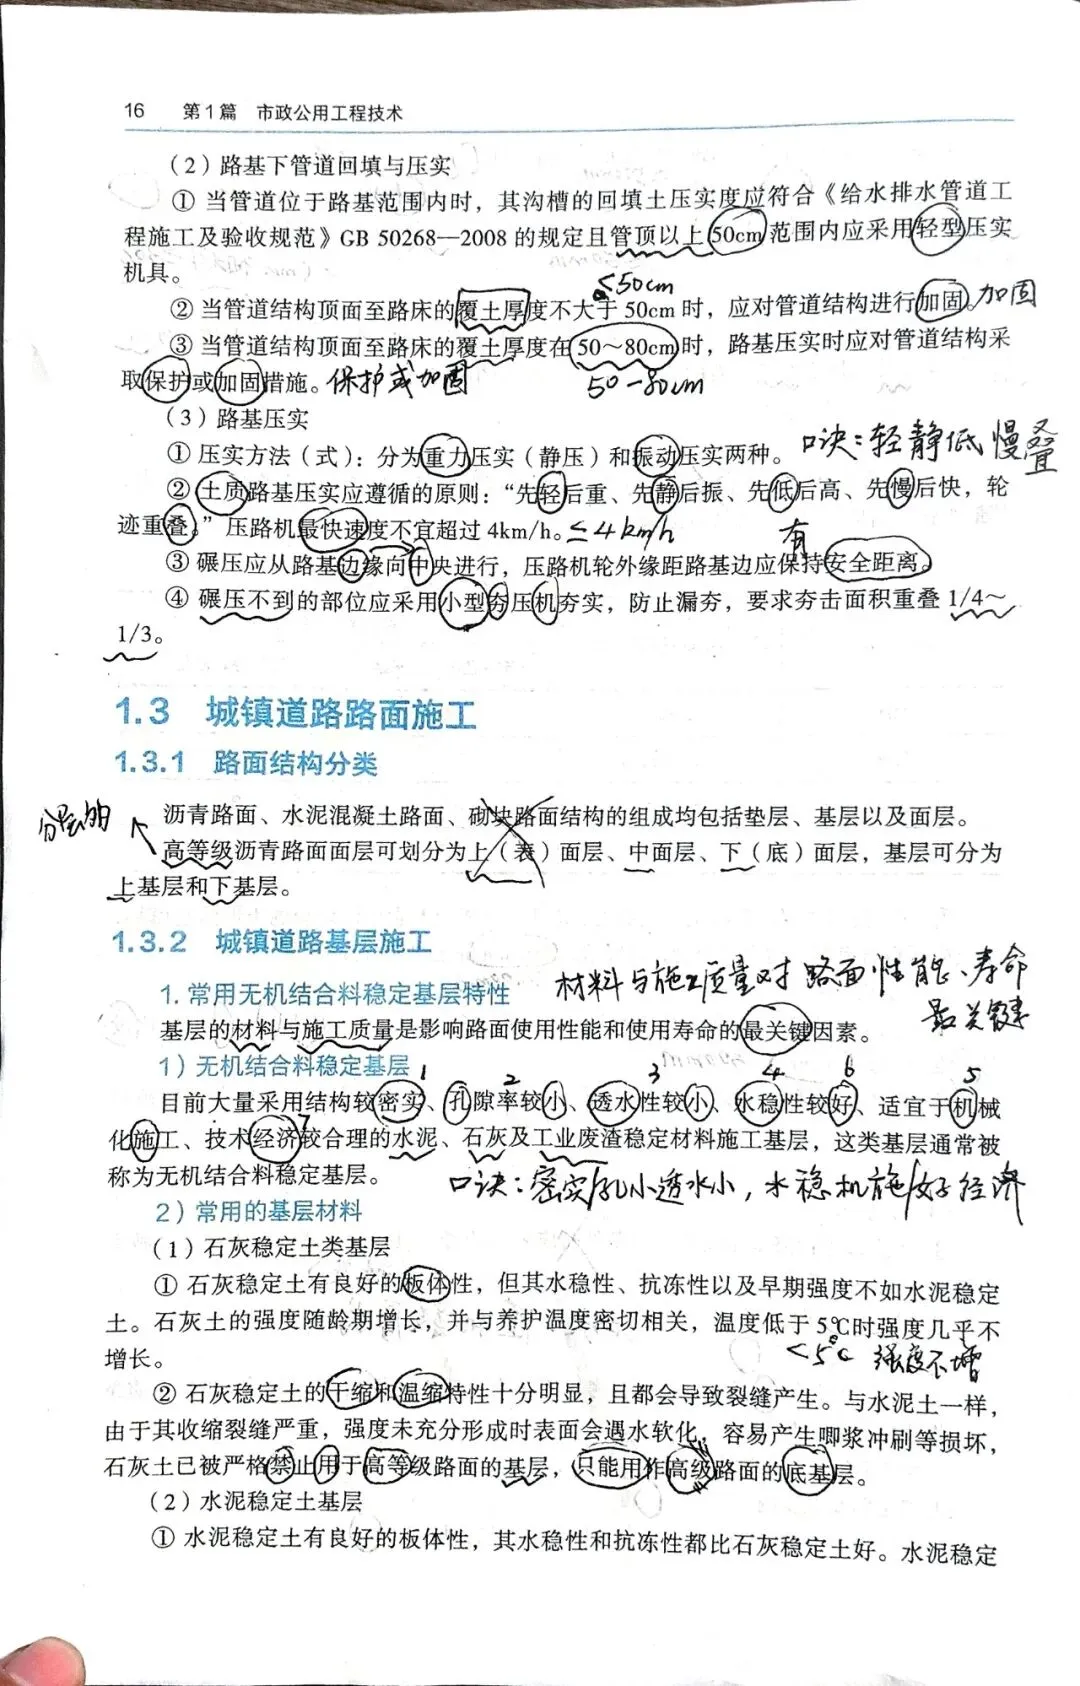 16 第1篇 市政公用工程技术
（2）路基下管道回填与压实
① 当管道位于路基范围内时，其沟槽的回填土压实度应符合《给水排水管道工
程施工及验收规范》GB 50268—2008 的规定且管顶以上 50cm 范围内应采用轻型压实
机具。
≤50cm
② 当管道结构顶面至路床的覆土厚度不大于 50cm 时，应对管道结构进行加固。加固
③ 当管道结构顶面至路床的覆土厚度在 50～80cm 时，路基压实时应对管道结构采
取保护或加固措施。保护或加固 50-80cm
（3）路基压实
① 压实方法（式）：分为重力压实（静压）和振动压实两种。口诀：轻静低慢叠
② 土质路基压实应遵循的原则：“先轻后重、先静后振、先低后高、先慢后快，轮
迹重叠。”压路机最快速度不宜超过 4km/h。≤4km/h 有
③ 碾压应从路基边缘向中央进行，压路机轮外缘距路基边应保持安全距离。
④ 碾压不到的部位应采用小型夯压机夯实，防止漏夯，要求夯击面积重叠 1/4～
1/3。
1.3 城镇道路路面施工
1.3.1 路面结构分类
沥青路面、水泥混凝土路面、砌块路面结构的组成均包括垫层、基层以及面层。
高等级沥青路面面层可划分为上（表）面层、中面层、下（底）面层，基层可分为
上基层和下基层。
1.3.2 城镇道路基层施工
材料与施工质量对路面性能、寿命
最关键
1. 常用无机结合料稳定基层特性
基层的材料与施工质量是影响路面使用性能和使用寿命的最关键因素。
1）无机结合料稳定基层
1 2 3 4 6 5
目前大量采用结构较密实、孔隙率较小、透水性较小、水稳性较好、适宜于机械
化施工、技术经济较合理的水泥、石灰及工业废渣稳定材料施工基层，这类基层通常被
7
称为无机结合料稳定基层。
口诀：密实/孔小透水小，水稳机施/好经济
2）常用的基层材料
（1）石灰稳定土类基层
① 石灰稳定土有良好的板体性，但其水稳性、抗冻性以及早期强度不如水泥稳定
土。石灰土的强度随龄期增长，并与养护温度密切相关，温度低于 5℃时强度几乎不
增长。
<5℃ 强度不增
② 石灰稳定土的干缩和温缩特性十分明显，且都会导致裂缝产生。与水泥土一样，
由于其收缩裂缝严重，强度未充分形成时表面会遇水软化，容易产生唧浆冲刷等损坏，
石灰土已被严格禁止用于高等级路面的基层，只能用作高级路面的底基层。
（2）水泥稳定土基层
① 水泥稳定土有良好的板体性，其水稳性和抗冻性都比石灰稳定土好。水泥稳定